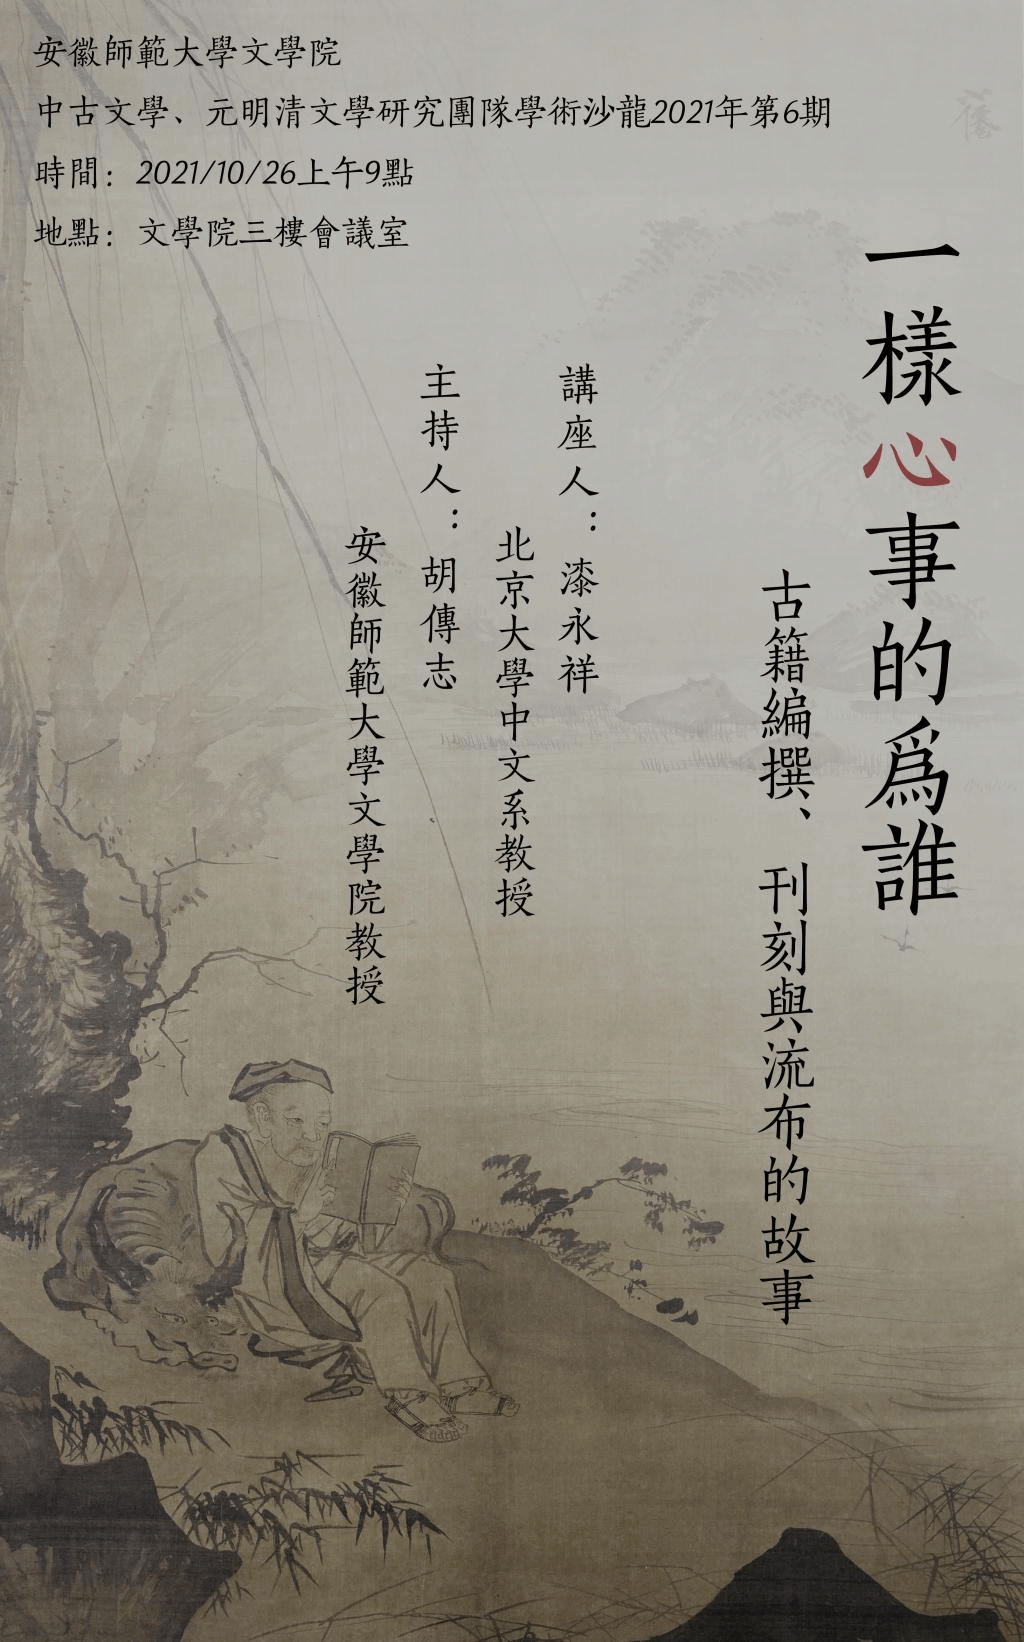 安徽師範大學文學院
中古文學、元明清文學研究團隊學術沙龍2021年第6期
時間：2021/10/26上午9點
地點：文學院三樓會議室
一樣心事的爲誰
古籍編撰、刊刻與流布的故事
講座人：漆永祥
北京大學中文系教授
主持人：胡傳志
安徽師範大學文學院教授